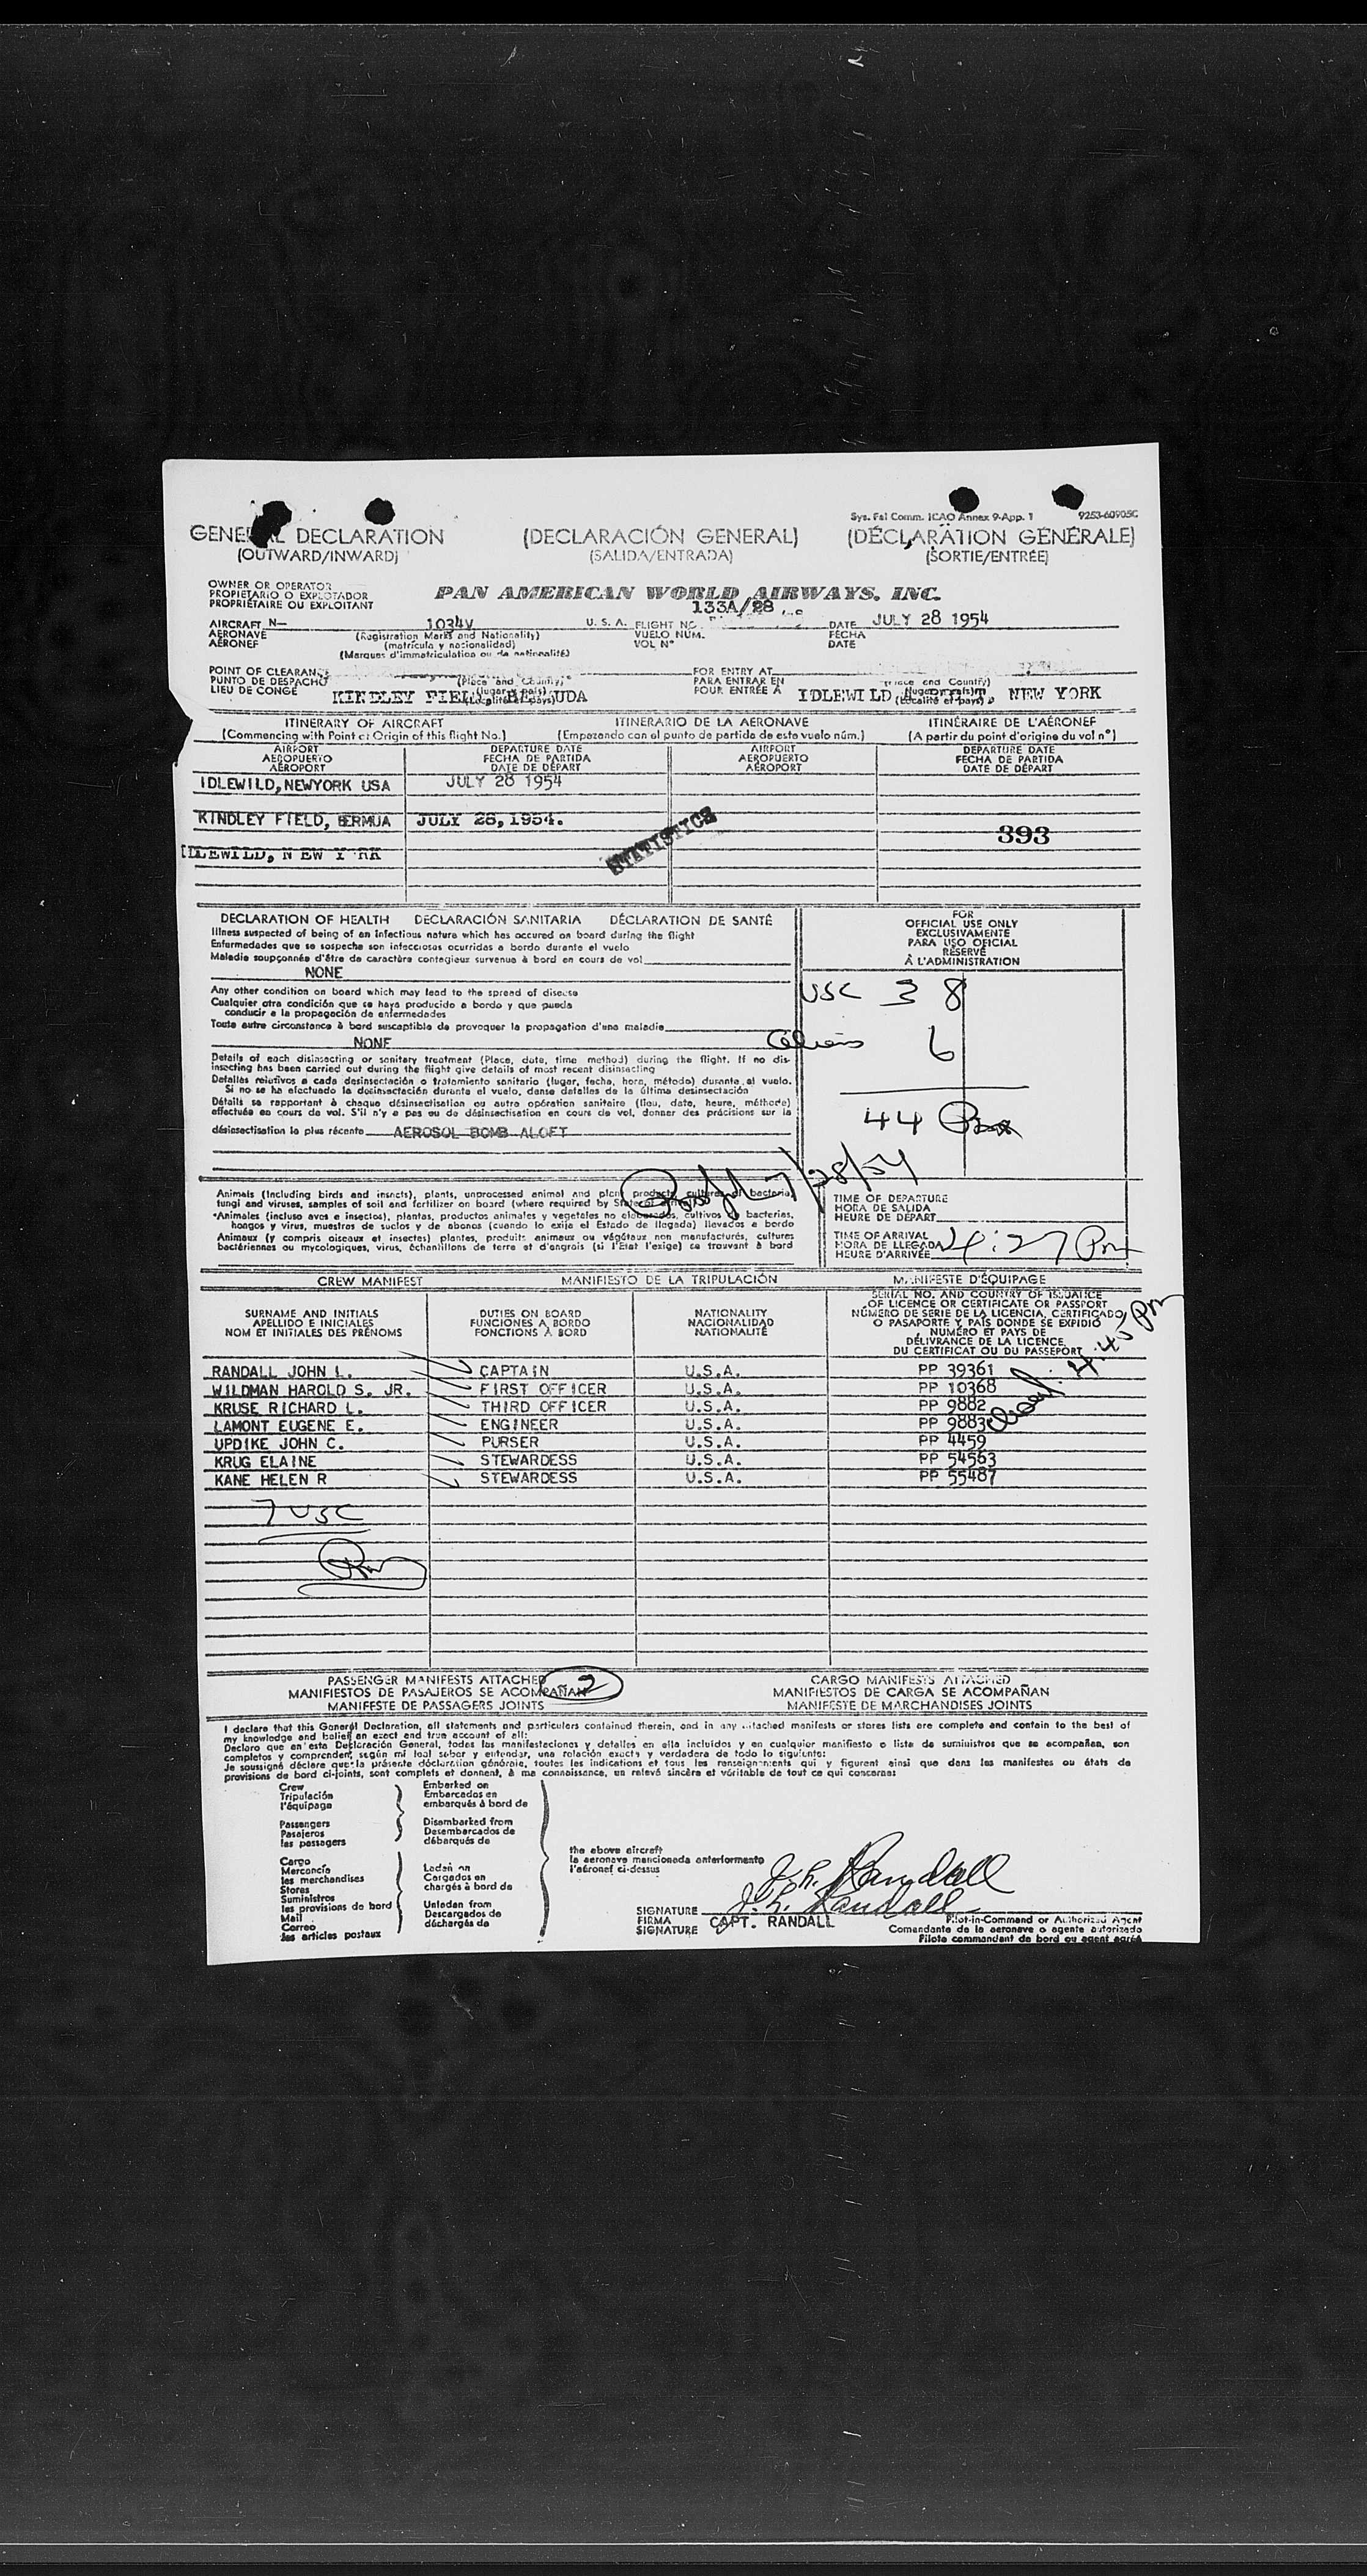 Sys. Fal Comm. ICAO Annex 9-App. 1 9253-60905C
GENERAL DECLARATION (DECLARACIÓN GENERAL) (DÉCLARATION GÉNÉRALE)
(OUTWARD/INWARD) (SALIDA/ENTRADA) (SORTIE/ENTRÉE)
OWNER OR OPERATOR
PROPIETARIO O EXPLOTADOR
PROPRIÉTAIRE OU EXPLOITANT
PAN AMERICAN WORLD AIRWAYS, INC.
133A/28
AIRCRAFT N— 1034V U. S. A. FLIGHT NO. DATE JULY 28 1954
AERONAVE (Registration Marks and Nationality) VUELO NUM. FECHA
AÉRONEF (matrícula y nacionalidad) VOL Nº DATE
(Marques d'immatriculation ou de nationalité)
POINT OF CLEARANCE (Place and Country) FOR ENTRY AT (Place and Country)
PUNTO DE DESPACHO (lugar y país) PARA ENTRAR EN (lugar y país)
LIEU DE CONGÉ KINDLEY FIELD, BERMUDA (Localité et pays) POUR ENTRÉE À IDLEWILD NEW YORK (Localité et pays)
ITINERARY OF AIRCRAFT ITINERARIO DE LA AERONAVE ITINÉRAIRE DE L'AÉRONEF
(Commencing with Point of Origin of this flight No.) (Empezando con el punto de partida de este vuelo núm.) (A partir du point d'origine du vol nº)
AIRPORT DEPARTURE DATE AIRPORT DEPARTURE DATE
AEROPUERTO FECHA DE PARTIDA AEROPUERTO FECHA DE PARTIDA
AÉROPORT DATE DE DÉPART AÉROPORT DATE DE DÉPART
IDLEWILD, NEWYORK USA JULY 28 1954
KINDLEY FIELD, BERMUA JULY 28, 1954.
STATISTICS
393
IDLEWILD, N EW Y RK
DECLARATION OF HEALTH DECLARACIÓN SANITARIA DÉCLARATION DE SANTÉ
Illness suspected of being of an infectious nature which has occured on board during the flight
Enfermedades que se sospeche son infecciosas ocurridas a bordo durante el vuelo
Maladie soupçonnée d'être de caractère contagieux survenue à bord en cours de vol
NONE
Any other condition on board which may lead to the spread of disease
Cualquier otra condición que se haya producido a bordo y que pueda
conducir a la propagación de enfermedades
Toute autre circonstance à bord susceptible de provoquer la propagation d'une maladie
NONE
Details of each disinsecting or sanitary treatment (Place, date, time method) during the flight. If no dis-
insecting has been carried out during the flight give details of most recent disinsecting
Detalles relativos a cada desinsectación o tratamiento sanitario (lugar, fecha, hora, método) durante el vuelo.
Si no se ha efectuado la desinsectación durante el vuelo, danse detalles de la última desinsectación
Détails se rapportant à chaque désinsectisation ou autre opération sanitaire (lieu, date, heure, méthode)
effectuée en cours de vol. S'il n'y a pas eu de désinsectisation en cours de vol, donner des précisions sur la
désinsectisation la plus récente AEROSOL BOMB ALOFT
FOR
OFFICIAL USE ONLY
EXCLUSIVAMENTE
PARA USO OFICIAL
RÉSERVÉ
À L'ADMINISTRATION
USC 38
Aliens 6
44
7/28/54
Animals (Including birds and insects), plants, unprocessed animal and plant products, cultures of bacteria,
fungi and viruses, samples of soil and fertilizer on board (where required by State of
*Animales (incluso aves e insectos), plantas, productos animales y vegetales no elaborados, cultivos de bacterias,
hongos y virus, muestras de suelos y de abonos (cuando lo exija el Estado de llegada) llevados a bordo
Animaux (y compris oiseaux et insectes) plantes, produits animaux ou végétaux non manufacturés, cultures
bactériennes ou mycologiques, virus, échantillons de terre et d'engrais (si l'État l'exige) se trouvant à bord
TIME OF DEPARTURE
HORA DE SALIDA
HEURE DE DÉPART
TIME OF ARRIVAL
HORA DE LLEGADA
HEURE D'ARRIVÉE 4:27 Pm
CREW MANIFEST MANIFIESTO DE LA TRIPULACIÓN MANIFESTE D'ÉQUIPAGE
SURNAME AND INITIALS
APELLIDO E INICIALES
NOM ET INITIALES DES PRÉNOMS
DUTIES ON BOARD
FUNCIONES A BORDO
FONCTIONS À BORD
NATIONALITY
NACIONALIDAD
NATIONALITÉ
SERIAL NO. AND COUNTRY OF ISSUANCE
OF LICENCE OR CERTIFICATE OR PASSPORT
NÚMERO DE SERIE DE LA LICENCIA, CERTIFICADO
O PASAPORTE Y PAÍS DONDE SE EXPIDIÓ
NUMÉRO ET PAYS DE
DÉLIVRANCE DE LA LICENCE
DU CERTIFICAT OU DU PASSEPORT
4:45 pm
RANDALL JOHN L. CAPTAIN U.S.A. PP 39361
WILDMAN HAROLD S. JR. FIRST OFFICER U.S.A. PP 10368
KRUSE RICHARD L. THIRD OFFICER U.S.A. PP 9882
LAMONT EUGENE E. ENGINEER U.S.A. PP 9883
UPDIKE JOHN C. PURSER U.S.A. PP 4459
KRUG ELAINE STEWARDESS U.S.A. PP 54563
KANE HELEN R STEWARDESS U.S.A. PP 55487
7 USC
PASSENGER MANIFESTS ATTACHED 2 CARGO MANIFESTS ATTACHED
MANIFIESTOS DE PASAJEROS SE ACOMPAÑAN MANIFIESTOS DE CARGA SE ACOMPAÑAN
MANIFESTE DE PASSAGERS JOINTS MANIFESTE DE MARCHANDISES JOINTS
I declare that this General Declaration, all statements and particulars contained therein, and in any attached manifests or stores lists are complete and contain to the best of
my knowledge and belief an exact and true account of all:
Declaro que en esta Declaración General, todas las manifestaciones y detalles en ella incluídos y en cualquier manifiesto o lista de suministros que se acompañan, son
completos y comprenden, según mi leal saber y entender, una relación exacta y verdadera de todo lo siguiente:
Je soussigné déclare que la présente déclaration générale, toutes les indications et tous les renseignements qui y figurent ainsi que dans les manifestes ou états de
provisions de bord ci-joints, sont complets et donnent, à ma connaissance, un relevé sincère et véritable de tout ce qui concerne:
Crew
Tripulación
l'équipage
Embarked on
Embarcados en
embarqués à bord de
Passengers
Pasajeros
les passagers
Disembarked from
Desembarcados de
débarqués de
Cargo
Mercancía
les merchandises
Stores
Suministros
les provisions de bord
Mail
Correo
les articles postaux
Laden on
Cargados en
chargés à bord de
Unladen from
Descargados de
déchargés de
the above aircraft
la aeronave mencionada anteriormente
l'aéronef ci-dessus
J. L. Randall
J. L. Randall
SIGNATURE
FIRMA CAPT. RANDALL
SIGNATURE
Pilot-in-Command or Authorized Agent
Comandante de la aeronave o agente autorizado
Pilote commandant de bord ou agent agréé